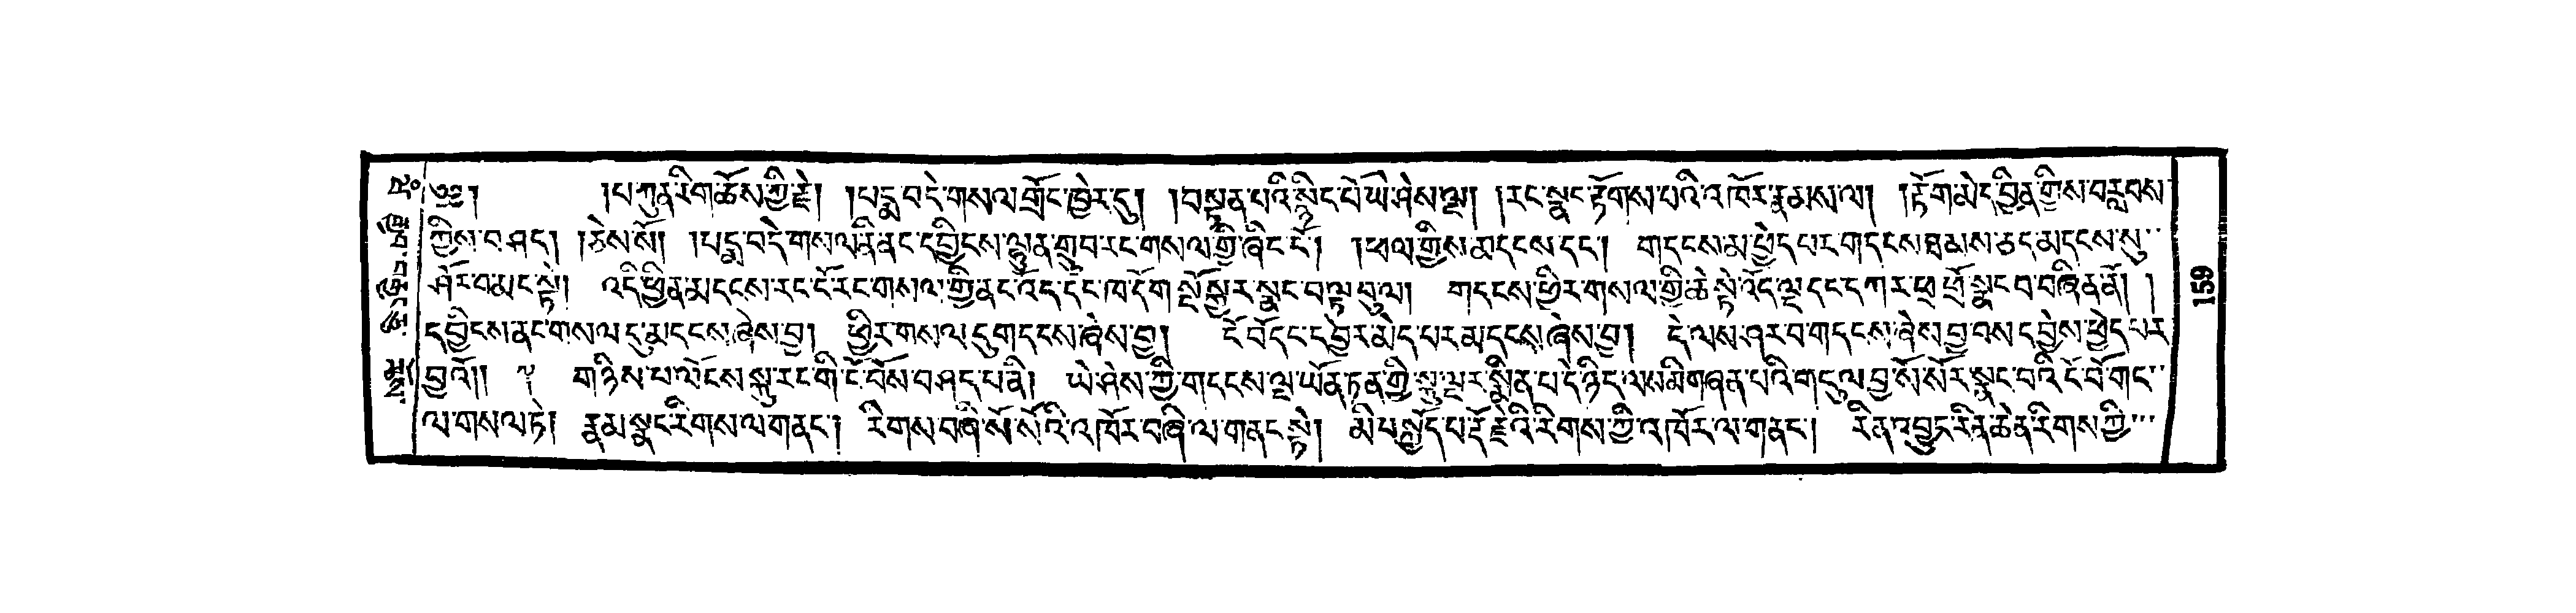 ༄༅། །པ་ཀུན་རིག་ཆོས་ཀྱི་རྗེ། །པདྨ་བདེ་གསལ་གྲོང་ཁྱེར་དུ། །བསྟན་པའི་སྙིང་པོ་ཡེ་ཤེས་ལྔ། །རང་སྣང་རྟོགས་པའི་འཁོར་རྣམས་ལ། །རྟོག་མེད་བྱིན་གྱིས་བརླབས་
ཀྱིས་བཤད། །ཅེས་སོ། །པདྨ་བདེ་གསལ་ནི་ནང་དབྱིངས་ལྷུན་གྲུབ་རང་གསལ་གྱི་ཞིང་ངོ་། །ཕལ་གྱིས་མདངས་དང་། གདངས་མ་ཕྱེད་པར་གདངས་ཐམས་ཅད་མདངས་སུ་
ཤོར་བ་མང་སྟེ། འདི་ཕྱིན་མདངས་རང་ངོ་རང་གསལ་གྱི་ནང་འོད་དང་ཁ་དོག་སྔོ་སྐྱར་སྣང་བ་ལྟ་བུལ། གདངས་ཕྱིར་གསལ་གྱི་ཆེ་སྟེ་འོད་ལྔ་དང་དཀར་ཕྲ་ཕྲོ་སྣང་བ་བཞིན་ནོ། །
དབྱིངས་ནང་གསལ་དུ་མདངས་ཞེས་བྱ། ཕྱིར་གསལ་དུ་གདངས་ཞེས་བྱ། ངོ་བོ་དང་དབྱེར་མེད་པར་མདངས་ཞེས་བྱ། དེ་ལས་ཤར་བ་གདངས་ཞེས་བྱ་བས་དབྱེས་ཕྱེད་པར་
བྱའོ།། གཉིས་པ་ལོངས་སྐུ་རང་གི་ངོ་བོས་བཤད་པ་ནི། ཡེ་ཤེས་ཀྱི་གདངས་ལྔ་ཡོན་ཏན་གྱི་སྐུ་ལྔར་སྨིན་པ་དེ་ཉིད་ལས་མིག་ཞན་པའི་གདུལ་བྱ་སོ་སོར་སྣང་བའི་ངོ་བོ་གང་
ལ་གསལ་ཏེ། རྣམ་སྣང་རིགས་ལ་གནང་། རིགས་བཞི་སོ་སོའི་འཁོར་བཞི་ལ་གནང་སྟེ། མི་བསྐྱོད་པ་རྡོ་རྗེའི་རིགས་ཀྱི་འཁོར་ལ་གནང་། རིན་འབྱུང་རིན་ཆེན་རིགས་ཀྱི་
159